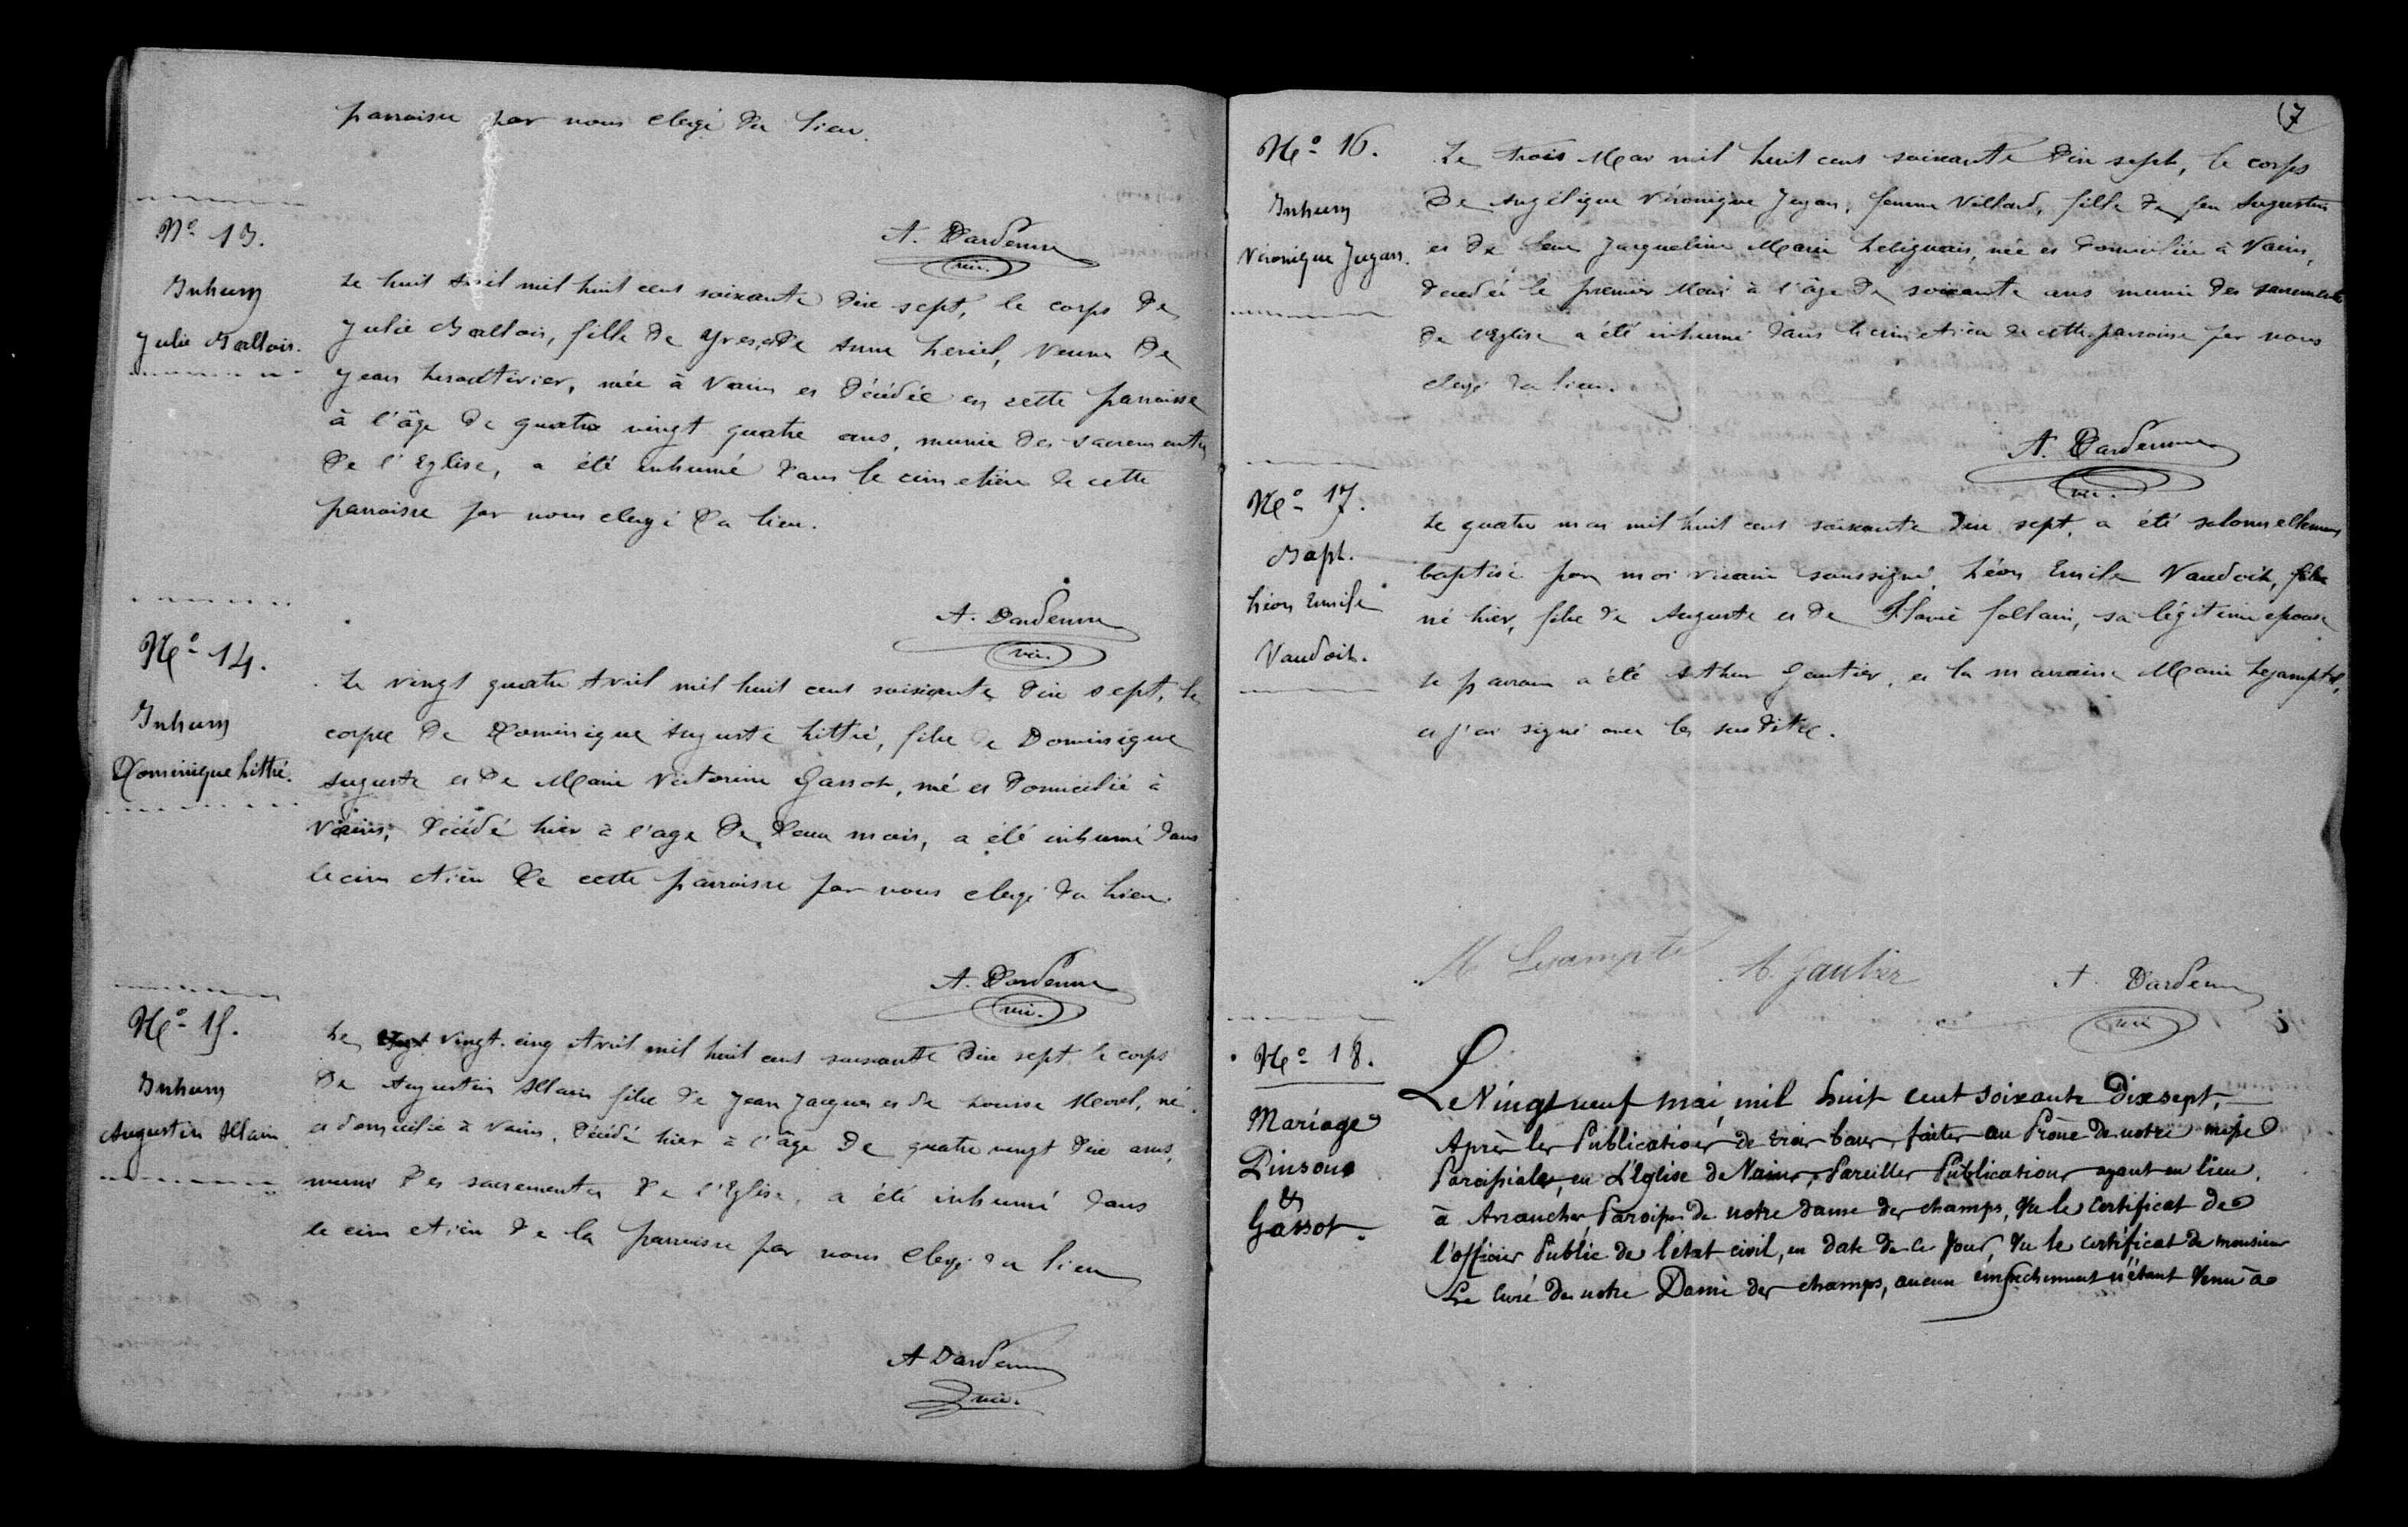 parroisse par nous clergé du lieu.
A. Dardenne
vic.
No 13.
Inhum
Julie Gallois.
Le huit Avril mil huit cent soixante dix sept, le corps de
Julie Gallois, fille de Yves, et de Anne Heriel, veuve de
Jean née à Vains et décédée en cette parroisse
à l'âge de quatre vingt quatre ans, munie des sacrements
de l'Eglise, a été inhumé dans le cimetière de cette
parroisse par nous clergé du lieu.
A. Dardenne
vic.
No 14.
Inhum
Dominique Littré.
Le vingt quatre Avril mil huit cent soixante dix sept, le
corps de Dominique Auguste Littré, fils de Dominique
Auguste et de Marie Victorine Gassot, né et domicilié à
Vains, décédé hier à l'age de deux mois, a été inhumé dans
le cimetière de cette parroisse par nous clergé du lieu.
A. Dardenne
vic.
No 15.
Inhum
Augustin Allain
Le vingt-cinq Avril mil huit cent soixante dix sept le corps
de Augustin Allain fils de Jean Jacques et de Louise Morel, né
et domicilié à Vains, décédé hier à l'âge de quatre vingt dix ans,
muni des sacrements de l'Eglise, a été inhumé dans
le cimetière de la parroisse par nous clergé du lieu
A Dardenne
vic.
7
No 16.
Inhum
Véronique Jugan.
Le trois Mai mil huit cent soixante dix sept, le corps
de Angélique Véronique Jugan, femme Villard, fille de feu Augustin
et de feue Jacqueline Marie née et domiciliée à Vains,
décédée le premier Mai à l'âge de soixante ans munie des sacrements
de l'Eglise a été inhumé dans le cimetière de cette parroisse par nous
clergé du lieu.
A. Dardenne
vic.
No 17.
Bapt.
Léon Emile
Vaudoit.
Le quatre mai mil huit cent soixante dix sept, a été solonnellement
baptisé par moi vicaire soussigné, Léon Emile Vaudoit, fils
né hier, fils de Auguste et de Flavie follain, sa légitime epouse
le parrain a été Arthur Gautier, et la marraine Marie Lejamptel,
et j'ai signé avec les susdits.
M Lejamptel A. Gautier A. Dardenne
vic
No 18.
Mariage
Pinson
&
Gassot.
Le Vingt neuf mai mil huit cent soixante Dix sept,
Après les Publications de trois bans, faites au Prône de notre messe
Paroissiale, en L'Eglise de Vains, Pareilles Publications ayant eu lieu.
à Avranches, Paroisse de notre dame des champs, Vu le certificat de
l'officier Public de l'état civil, en date de ce Jour, Vu le certificat de monsieur
Le Curé de notre Dame des champs, aucun empêchement n'étant venu à